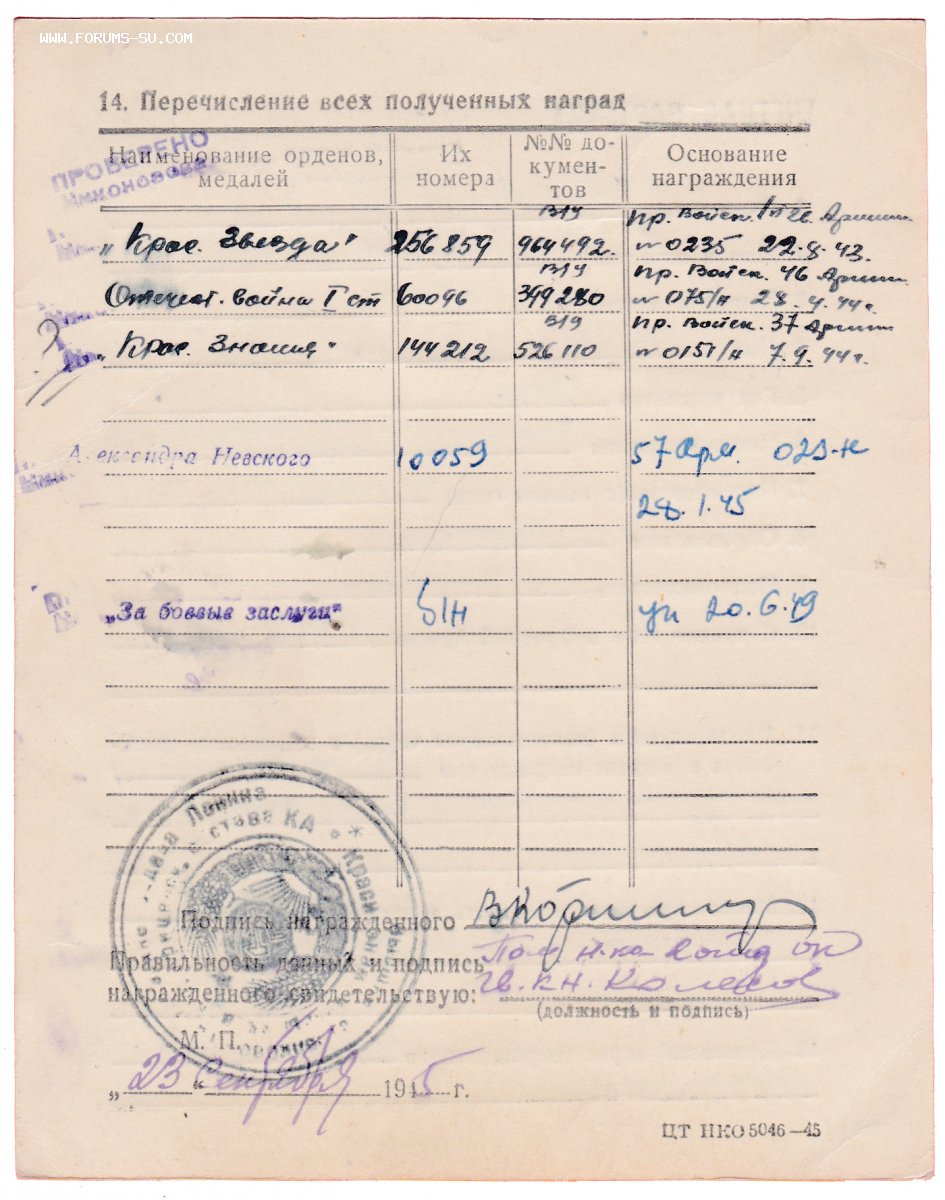 WWW.FORUMS-SU.COM
14. Перечисление всех полученных наград
ПРОВЕРЕНО
Наименование орденов, медалей
Их номера
№№ документов
Основание награждения
„Крас. Звезда" 256859 В19 964492. Пр. Войск. Армии №0235 22.8.43.
Отечест. война I ст 60096 В19 349280 Пр. Войск. 46 Армии №075/н 28.4.44г.
„Крас. Знамя" 144212 В19 526110 Пр. Войск. 37 Армии №0151/н 7.9.44г.
Александра Невского 10059 57 Арм. 029-н
28.1.45
„За боевые заслуги" б/н ук 20.6.49
Подпись награжденного
Правильность данных и подпись
награжденного свидетельствую:
(должность и подпись)
М. П.
„23" Сентября 1945 г.
ЦТ НКО 5046—45